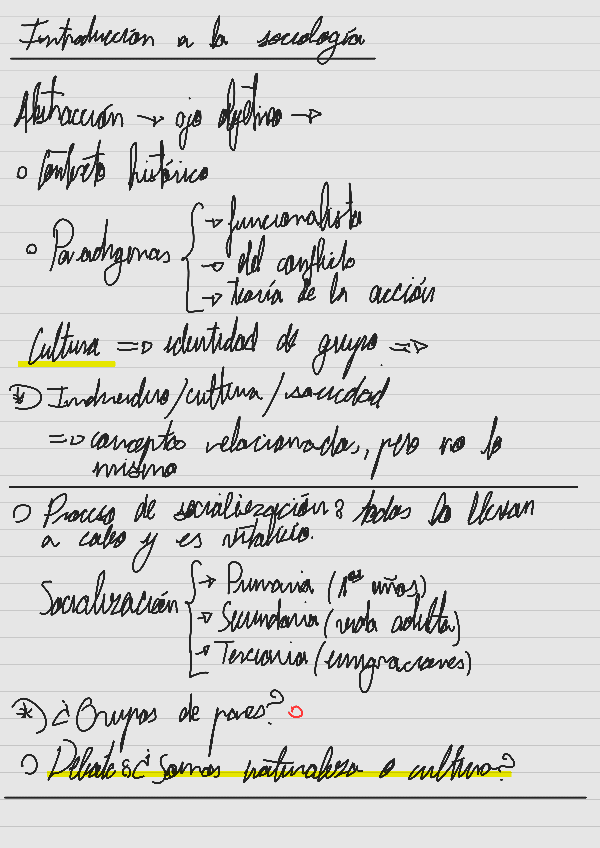 Introducción a la sociología
Abstracción → ojo objetivo →
○ Contexto histórico
○ Paradigmas { → funcionalista
→ del conflicto
→ teoría de la acción
Cultura => identidad de grupo =>
* Individuo/cultura/sociedad
=> conceptos relacionados, pero no lo
mismo
○ Proceso de socialización: todos lo llevan
a cabo y es vitalicio.
Socialización { → Primaria (1os años)
→ Secundaria (vida adulta)
→ Terciaria (inmigraciones)
* ¿Grupos de pares? ○
○ Debate: ¿Somos naturaleza o cultura?